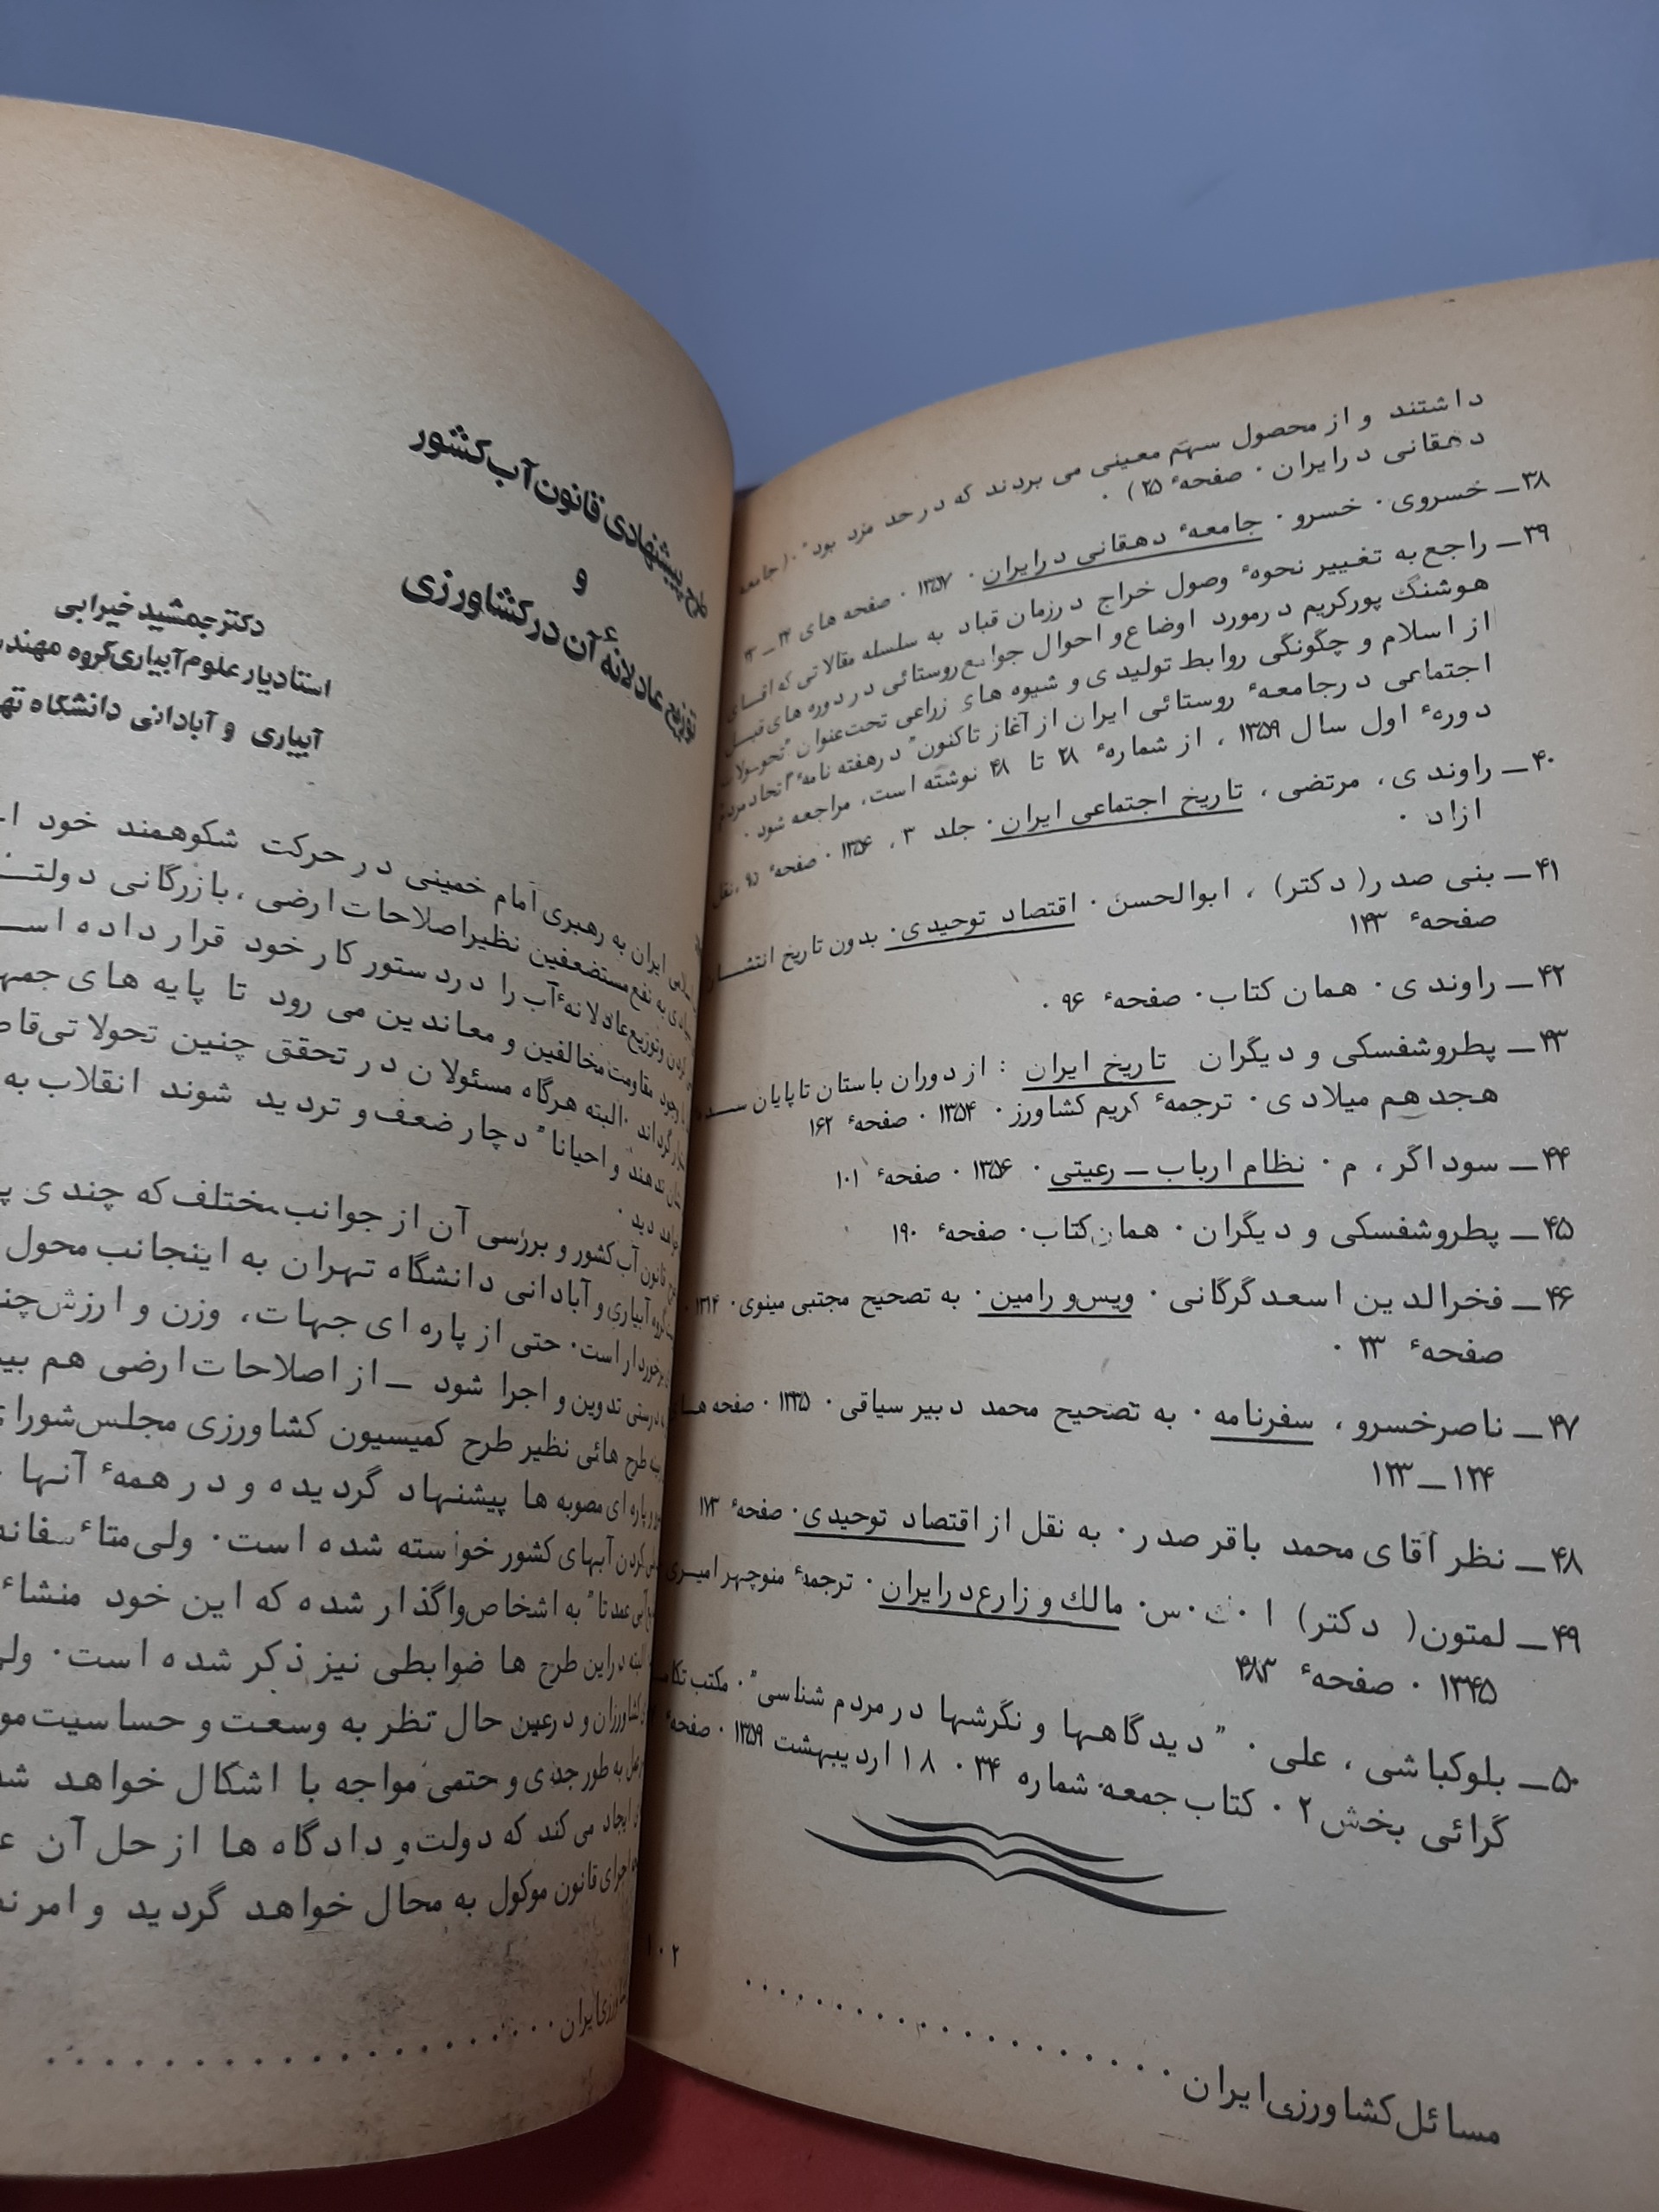 داشتند و از محصول سهم معینی می بردند که در حد مزد بود" . (جامعه
دهقانی در ایران . صفحهٔ ۲۵) .
۳۸ــ خسروی . خسرو . جامعهٔ دهقانی در ایران . ۱۳۵۷ . صفحه های
۳۹ــ راجع به تغییر نحوهٔ وصول خراج در زمان قباد به سلسله مقالاتی که اقای
هوشنگ پورکریم در مورد اوضاع و احوال جوامع روستائی در دوره های قبل
از اسلام و چگونگی روابط تولیدی و شیوه های زراعی تحت عنوان "تحولات
اجتماعی در جامعهٔ روستائی ایران از آغاز تاکنون" در هفته نامهٔ اتحاد مردم
دورهٔ اول سال ۱۳۵۹ ، از شمارهٔ ۲۸ تا ۴۸ نوشته است، مراجعه شود .
۴۰ــ راوندی، مرتضی ، تاریخ اجتماعی ایران . جلد ۳ ، ۱۳۵۶ . صفحهٔ ۹۵ ، نقل
ازاد .
۴۱ــ بنی صدر (دکتر) ، ابوالحسن . اقتصاد توحیدی . بدون تاریخ انتشار
صفحهٔ ۱۴۳
۴۲ــ راوندی . همان کتاب . صفحهٔ ۹۶ .
۴۳ــ پطروشفسکی و دیگران تاریخ ایران : از دوران باستان تا پایان سده
هجدهم میلادی . ترجمهٔ کریم کشاورز . ۱۳۵۴ . صفحهٔ ۱۶۲
۴۴ــ سوداگر ، م . نظام ارباب ــ رعیتی . ۱۳۵۶ . صفحهٔ ۱۰۱
۴۵ــ پطروشفسکی و دیگران . همان کتاب . صفحهٔ ۱۹۰
۴۶ــ فخرالدین اسعد گرگانی . ویس و رامین . به تصحیح مجتبی مینوی . ۱۳۱۴ .
صفحهٔ ۲۳ .
۴۷ــ ناصرخسرو ، سفرنامه . به تصحیح محمد دبیر سیاقی . ۱۳۳۵ . صفحه های
۱۲۴ــ۱۲۳
۴۸ــ نظر آقای محمد باقر صدر . به نقل از اقتصاد توحیدی . صفحهٔ ۱۷۳
۴۹ــ لمتون ( دکتر) ا . ث . س . مالك و زارع در ایران . ترجمهٔ منوچهر امیری
۱۳۴۵ . صفحهٔ ۴۸۳
۵۰ــ بلوکباشی ، علی . " دیدگاهها و نگرشها در مردم شناسی" . مکتب تکامل
گرائی بخش ۲ . کتاب جمعه . شماره ۳۴ . ۱۸ اردیبهشت ۱۳۵۹ . صفحهٔ
۱۰۲
مسائل کشاورزی ایران . . . . . . . . . . . . . . . . . . .
طرح پیشنهادی قانون آب کشور
و
توزیع عادلانهٔ آن در کشاورزی
دکتر جمشید خیرابی
استادیار علوم آبیاری گروه
آبیاری و آبادانی دانشگاه
ایران به رهبری امام خمینی در حرکت شکوهمند خود
به نفع مستضعفین نظیر اصلاحات ارضی ، بازرگانی
کردن و توزیع عادلانهٔ آب را در دستور کار خود قرار داده
وجود مقاومت مخالفین و معاندین می رود تا پایه های
گرداند . البته هرگاه مسئولان در تحقق چنین تحولاتی
ندهند و احیانا" دچار ضعف و تردید شوند انقلاب به
دید .
قانون آب کشور و بررسی آن از جوانب مختلف که چندی
گروه آبیاری و آبادانی دانشگاه تهران به اینجانب محول
برخوردار است . حتی از پاره ای جهات ، وزن و ارزش
درستی تدوین و اجرا شود ــ از اصلاحات ارضی هم
طرح هائی نظیر طرح کمیسیون کشاورزی مجلس شورای
و پاره ای مصوبه ها پیشنهاد گردیده و در همهٔ آنها
کردن آبهای کشور خواسته شده است . ولی متأسفانه
عمدتا" به اشخاص واگذار شده که این خود منشاء
البته در این طرح ها ضوابطی نیز ذکر شده است .
کشاورزان و در عین حال تظر به وسعت و حساسیت
به طور جدی و حتمی مواجه با اشکال خواهد
ایجاد می کند که دولت و دادگاه ها از حل آن
اجرای قانون موکول به محال خواهد گردید و امر
ایران . . . . . . . . . . . . . . . . . .